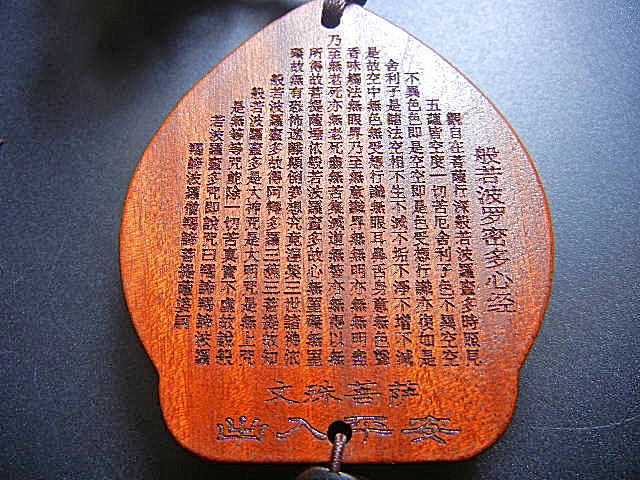 般若波罗密多心经
觀自在菩薩行深般若波羅蜜多時照見
五蘊皆空度一切苦厄舍利子色不異空空
不異色色即是空空即是色受想行識亦復如是
舍利子是諸法空相不生不滅不垢不淨不增不減
是故空中無色無受想行識無眼耳鼻舌身意無色聲
香味觸法無眼界乃至無意識界無無明亦無無明盡
乃至無老死亦無老死盡無苦集滅道無智亦無得以無
所得故菩提薩埵依般若波羅蜜多故心無罣礙無罣
礙故無有恐怖遠離顛倒夢想究竟涅槃三世諸佛依
般若波羅蜜多故得阿耨多羅三藐三菩提故知
般若波羅蜜多是大神咒是大明咒是無上咒
是無等等咒能除一切苦真實不虛故說般
若波羅蜜多咒即說咒曰揭諦揭諦波羅
揭諦波羅僧揭諦菩提薩婆訶
文殊菩萨
出入平安